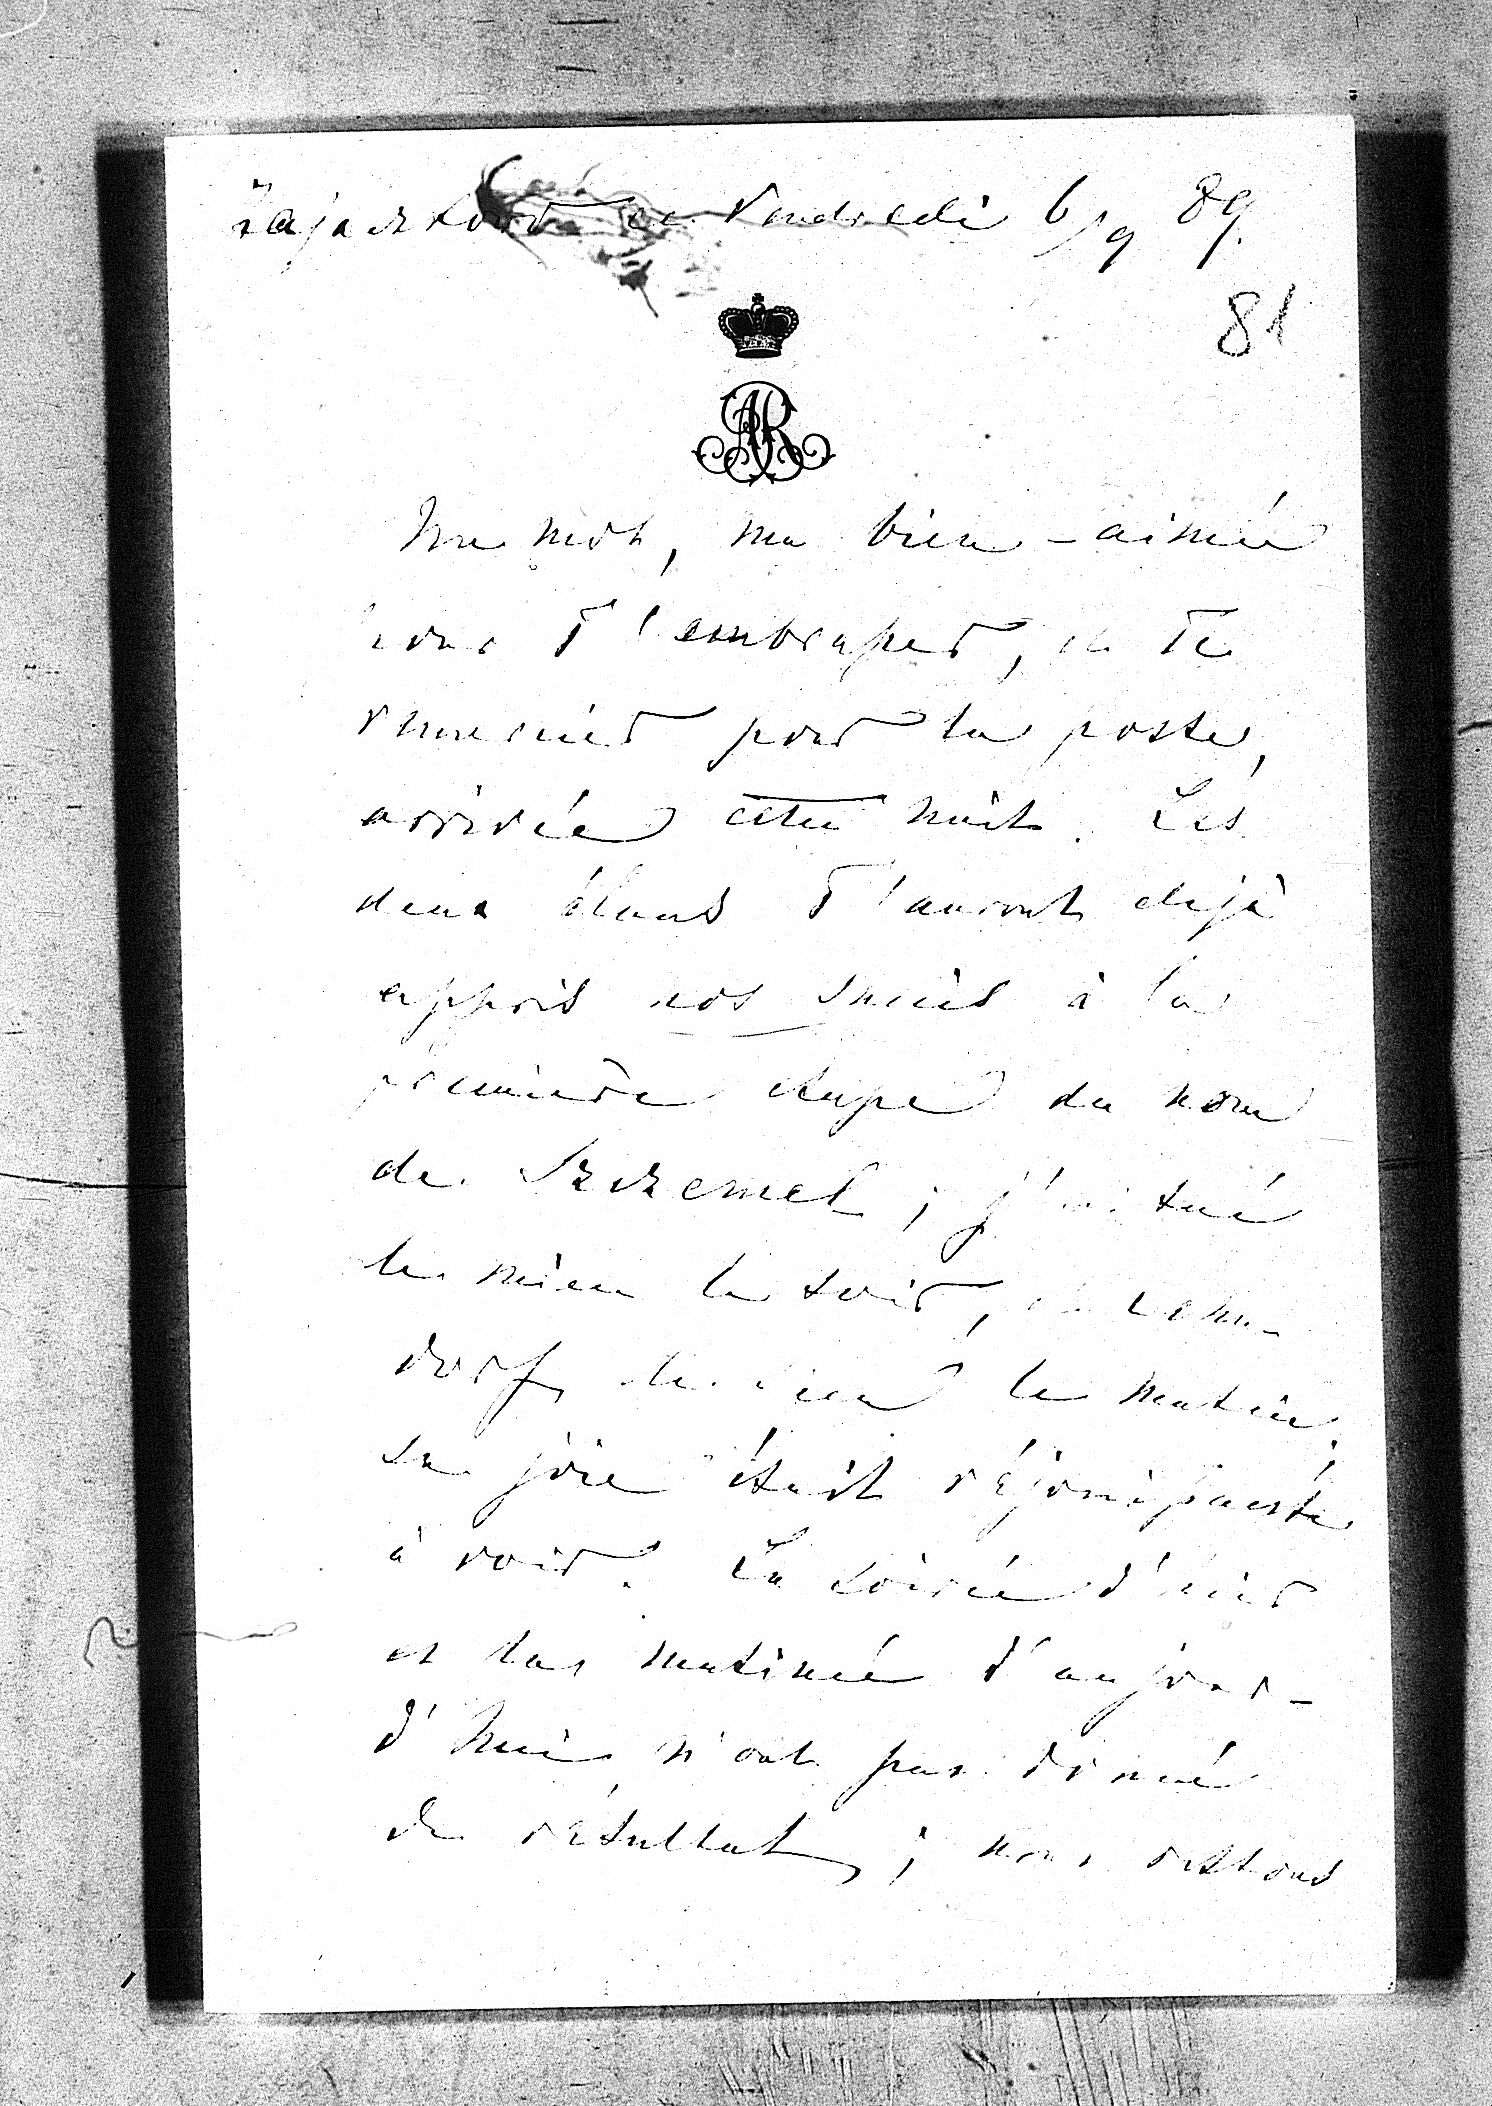 ce Vendredi 6/9 89.
81
AR
Un mot, ma bien-aimée
pour t'embrasser, et te
remercier pour ta poste,
arrivée cette nuit. Les
deux élans t'auront déjà
appris nos succès à la
première étape du nom
de Szczemel ; j'ai tué
le mien le soir, et Lehn-
dorf, le sien le matin;
sa joie était réjouissante
à voir. La soirée d'hier
et la matinée d'aujour-
d'hui n'ont pas donné
de résultat ; nous restons